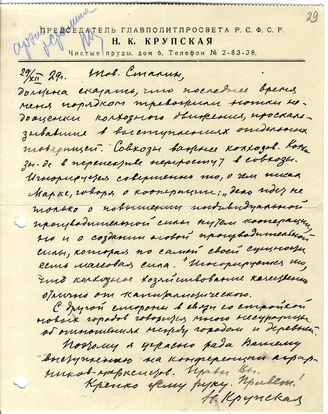 29
архив
ПРЕДСЕДАТЕЛЬ ГЛАВПОЛИТПРОСВЕТА Р. С. Ф. С. Р.
Н. К. КРУПСКАЯ
Чистые пруды, дом 6, Телефон № 2-83-38.
29/XII 29 г. Тов. Сталин,
должна сказать, что последнее время
меня порядком тревожили нотки не-
дооценки колхозного движения, проскаль-
зывавшие в выступлениях отдельных
товарищей. Совхозы важнее колхозов. Колхо-
зы-де в перспективе перерастут в совхозы.
Игнорируется совершенно то, о чем писал
Маркс, говоря о кооперации: „дело идет не
только о повышении индивидуальной
производительной силы путем кооперации,
но и о создании новой производительной
силы, которая по самой своей сущности
есть массовая сила." Игнорируется и то,
что колхозное хозяйствование качественно
отлично от капиталистического.
С другой стороны в связи со стройкой
новых городов говорилось много несуразицы
об отношениях между городом и деревней.
Поэтому я ужасно рада Вашему
выступлению на конференции аграр-
ников-марксистов. Правы Вы.
Крепко жму руку. Привет!
Н. Крупская